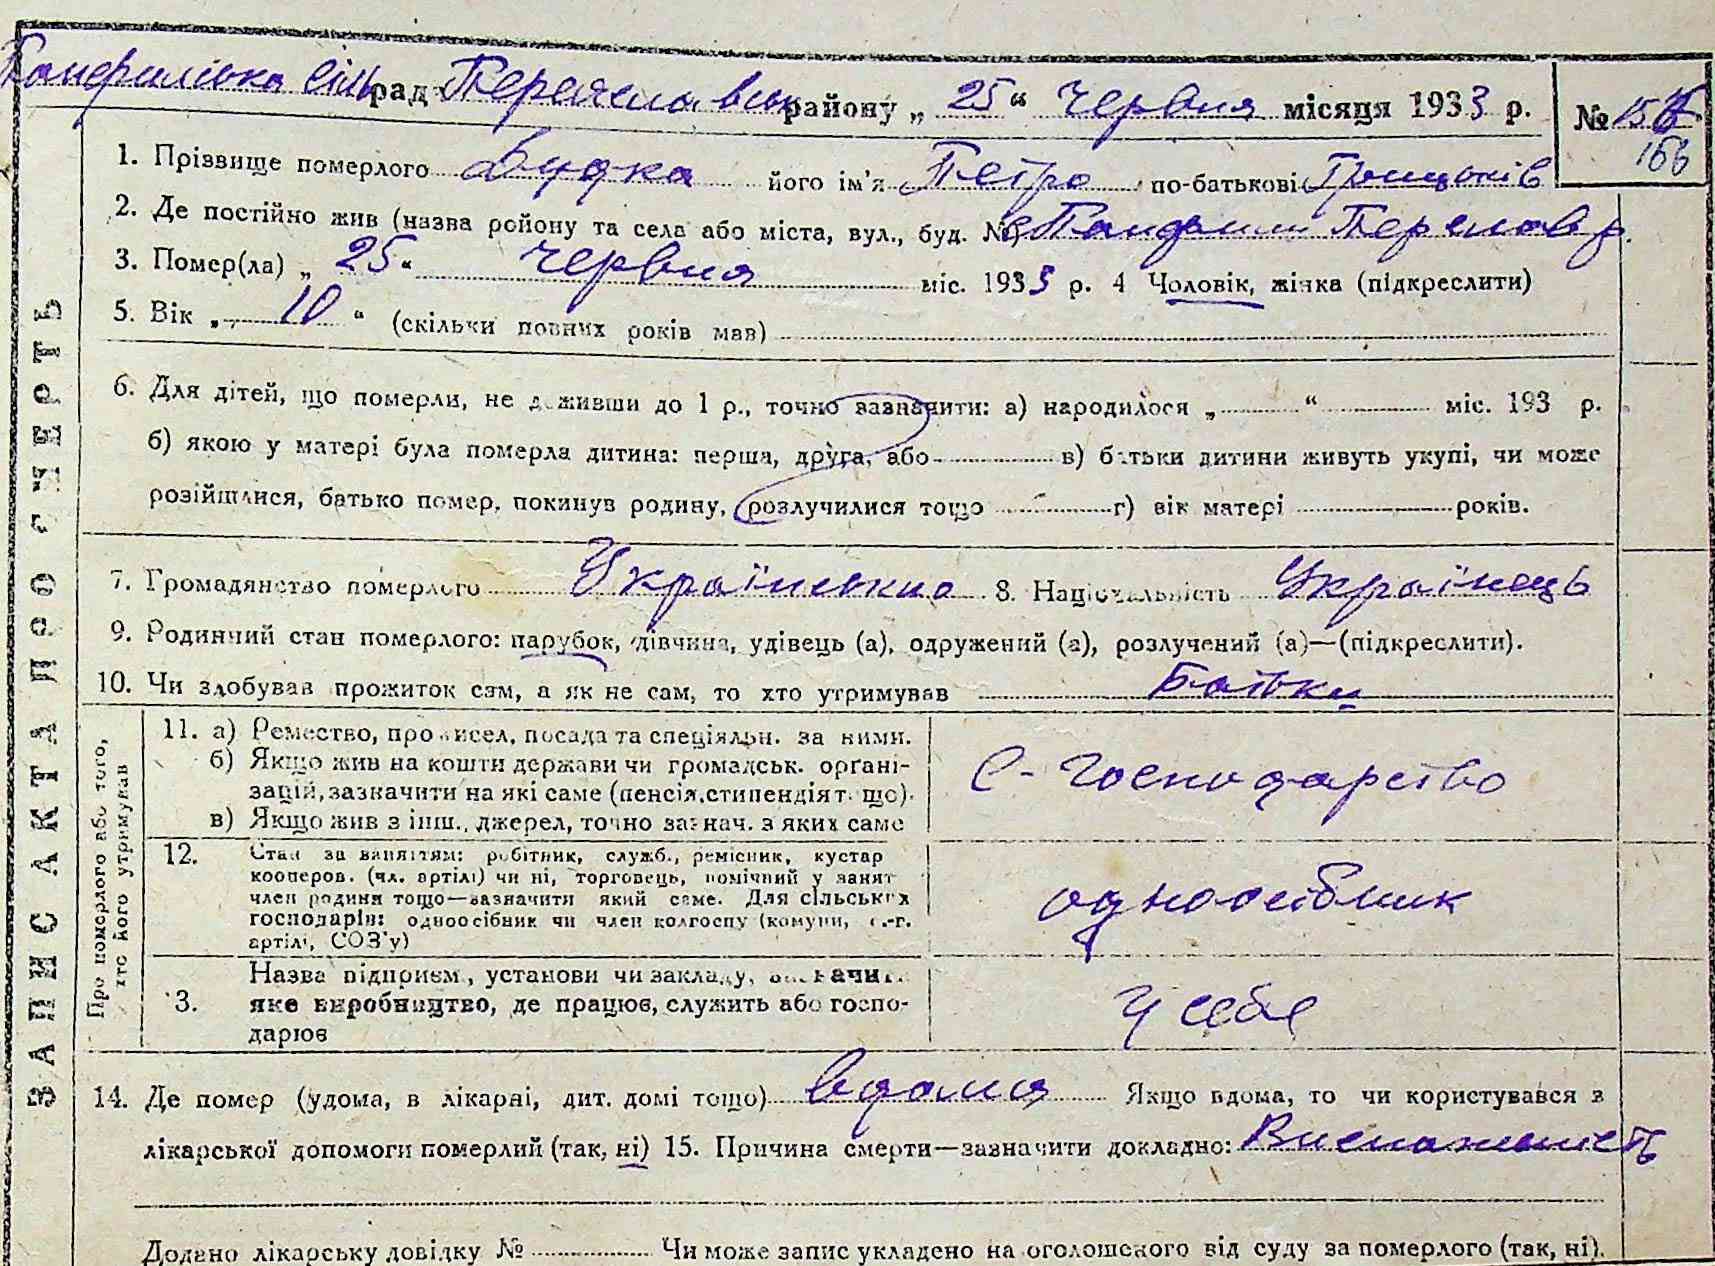 Панфилівська сіль рад Переяславськ району „ 25 “ червня місяця 1933 р. № 15
166
1. Прізвище померлого Будка його ім'я Петро по-батькові Грицьків
2. Де постійно жив (назва ройону та села або міста, вул., буд. №) с Панфили Переяслав р.
3. Помер(ла) „ 25 “ червня міс. 1933 р. 4 Чоловік, жінка (підкреслити)
5. Вік „ 10 “ (скільки повних років мав)
6. Для дітей, що померли, не доживши до 1 р., точно зазначити: а) народилося „ “ міс. 193 р.
б) якою у матері була померла дитина: перша, друга, або в) батьки дитини живуть укупі, чи може
розійшлися, батько помер, покинув родину, розлучилися тощо г) вік матері років.
7. Громадянство померлого Українське 8. Національність Українець
9. Родинний стан померлого: парубок, дівчина, удівець (а), одружений (а), розлучений (а)—(підкреслити).
10. Чи здобував прожиток сам, а як не сам, то хто утримував Батьки
11. а) Ремество, промисел, посада та спеціяльн. за ними.
б) Якщо жив на кошти держави чи громадськ. органі-
зацій, зазначити на які саме (пенсія, стипендія т. що).
в) Якщо жив з інш., джерел, точно зазнач. з яких саме
С-господарство
12. Стан за заняттям: робітник, служб., ремісник, кустар
кооперов. (чл. артілі) чи ні, торговець, помічний у занят
член родини тощо—зазначити який саме. Для сільських
господарів: одноосібник чи член колгоспу (комуни, с.-г.
артілі, СОЗ'у)
одноосібник
13. Назва підприєм., установи чи закладу, зазначити
яке виробництво, де працює, служить або госпо-
дарює
У себе
Про померлого або того,
хто його утримував
ЗАПИС АКТА ПРО СМЕРТЬ
14. Де помер (удома, в лікарні, дит. домі тощо) вдома Якщо вдома, то чи користувався з
лікарської допомоги померлий (так, ні) 15. Причина смерти—зазначити докладно: Виснаженість
Додано лікарську довідку № Чи може запис укладено на оголошеного від суду за померлого (так, ні).